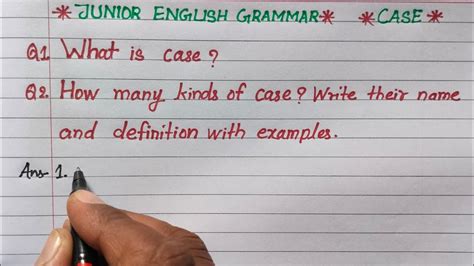 *JUNIOR ENGLISH GRAMMAR* *CASE*
Q1. What is case?
Q2. How many kinds of case? Write their name
and definition with examples.
Ans- 1.